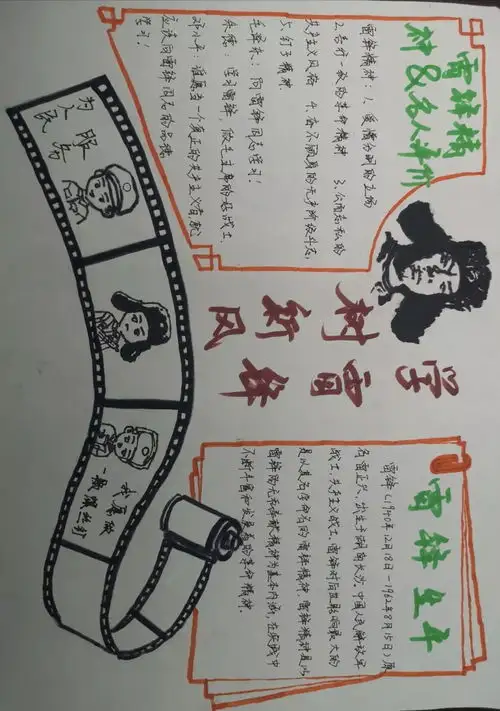 雷锋精
神&名人评价
雷锋精神：1、爱憎分明的立场
2.言行一致的革命精神 3.公而忘私的
共产主义风格 4.奋不顾身的无产阶级斗志
5.钉子精神
毛泽东：向雷锋同志学习！
朱德：学习雷锋，做毛主席的好战士.
邓小平：谁愿当一个真正的共产主义者,就
应该向雷锋同志的品德
学习！
学雷锋
树新风
雷锋生平
雷锋(1940年12月18日-1962年8月15日)原
名雷正兴，出生于湖南长沙，中国人民解放军
战士，共产主义战士.雷锋对后世影响最大的
是以其名字命名的雷锋精神.雷锋精神是以
雷锋的无私奉献精神为基本内涵，在实践中
不断丰富和发展着的革命精神.
为人民
服务
我愿做
一颗螺丝钉